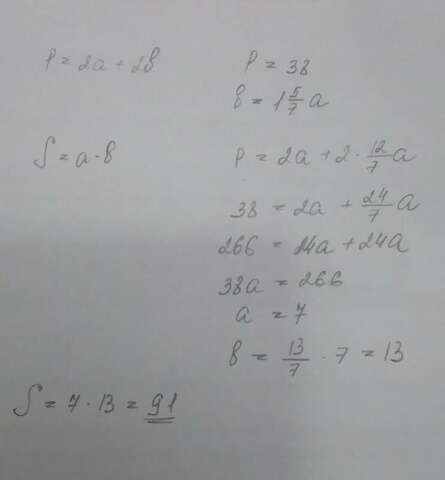 P = 2a + 2b
P = 38
b = 1 5/7 a
S = a · b
P = 2a + 2 · 12/7 a
38 = 2a + 24/7 a
266 = 14a + 24a
38a = 266
a = 7
b = 13/7 · 7 = 13
S = 7 · 13 = 91